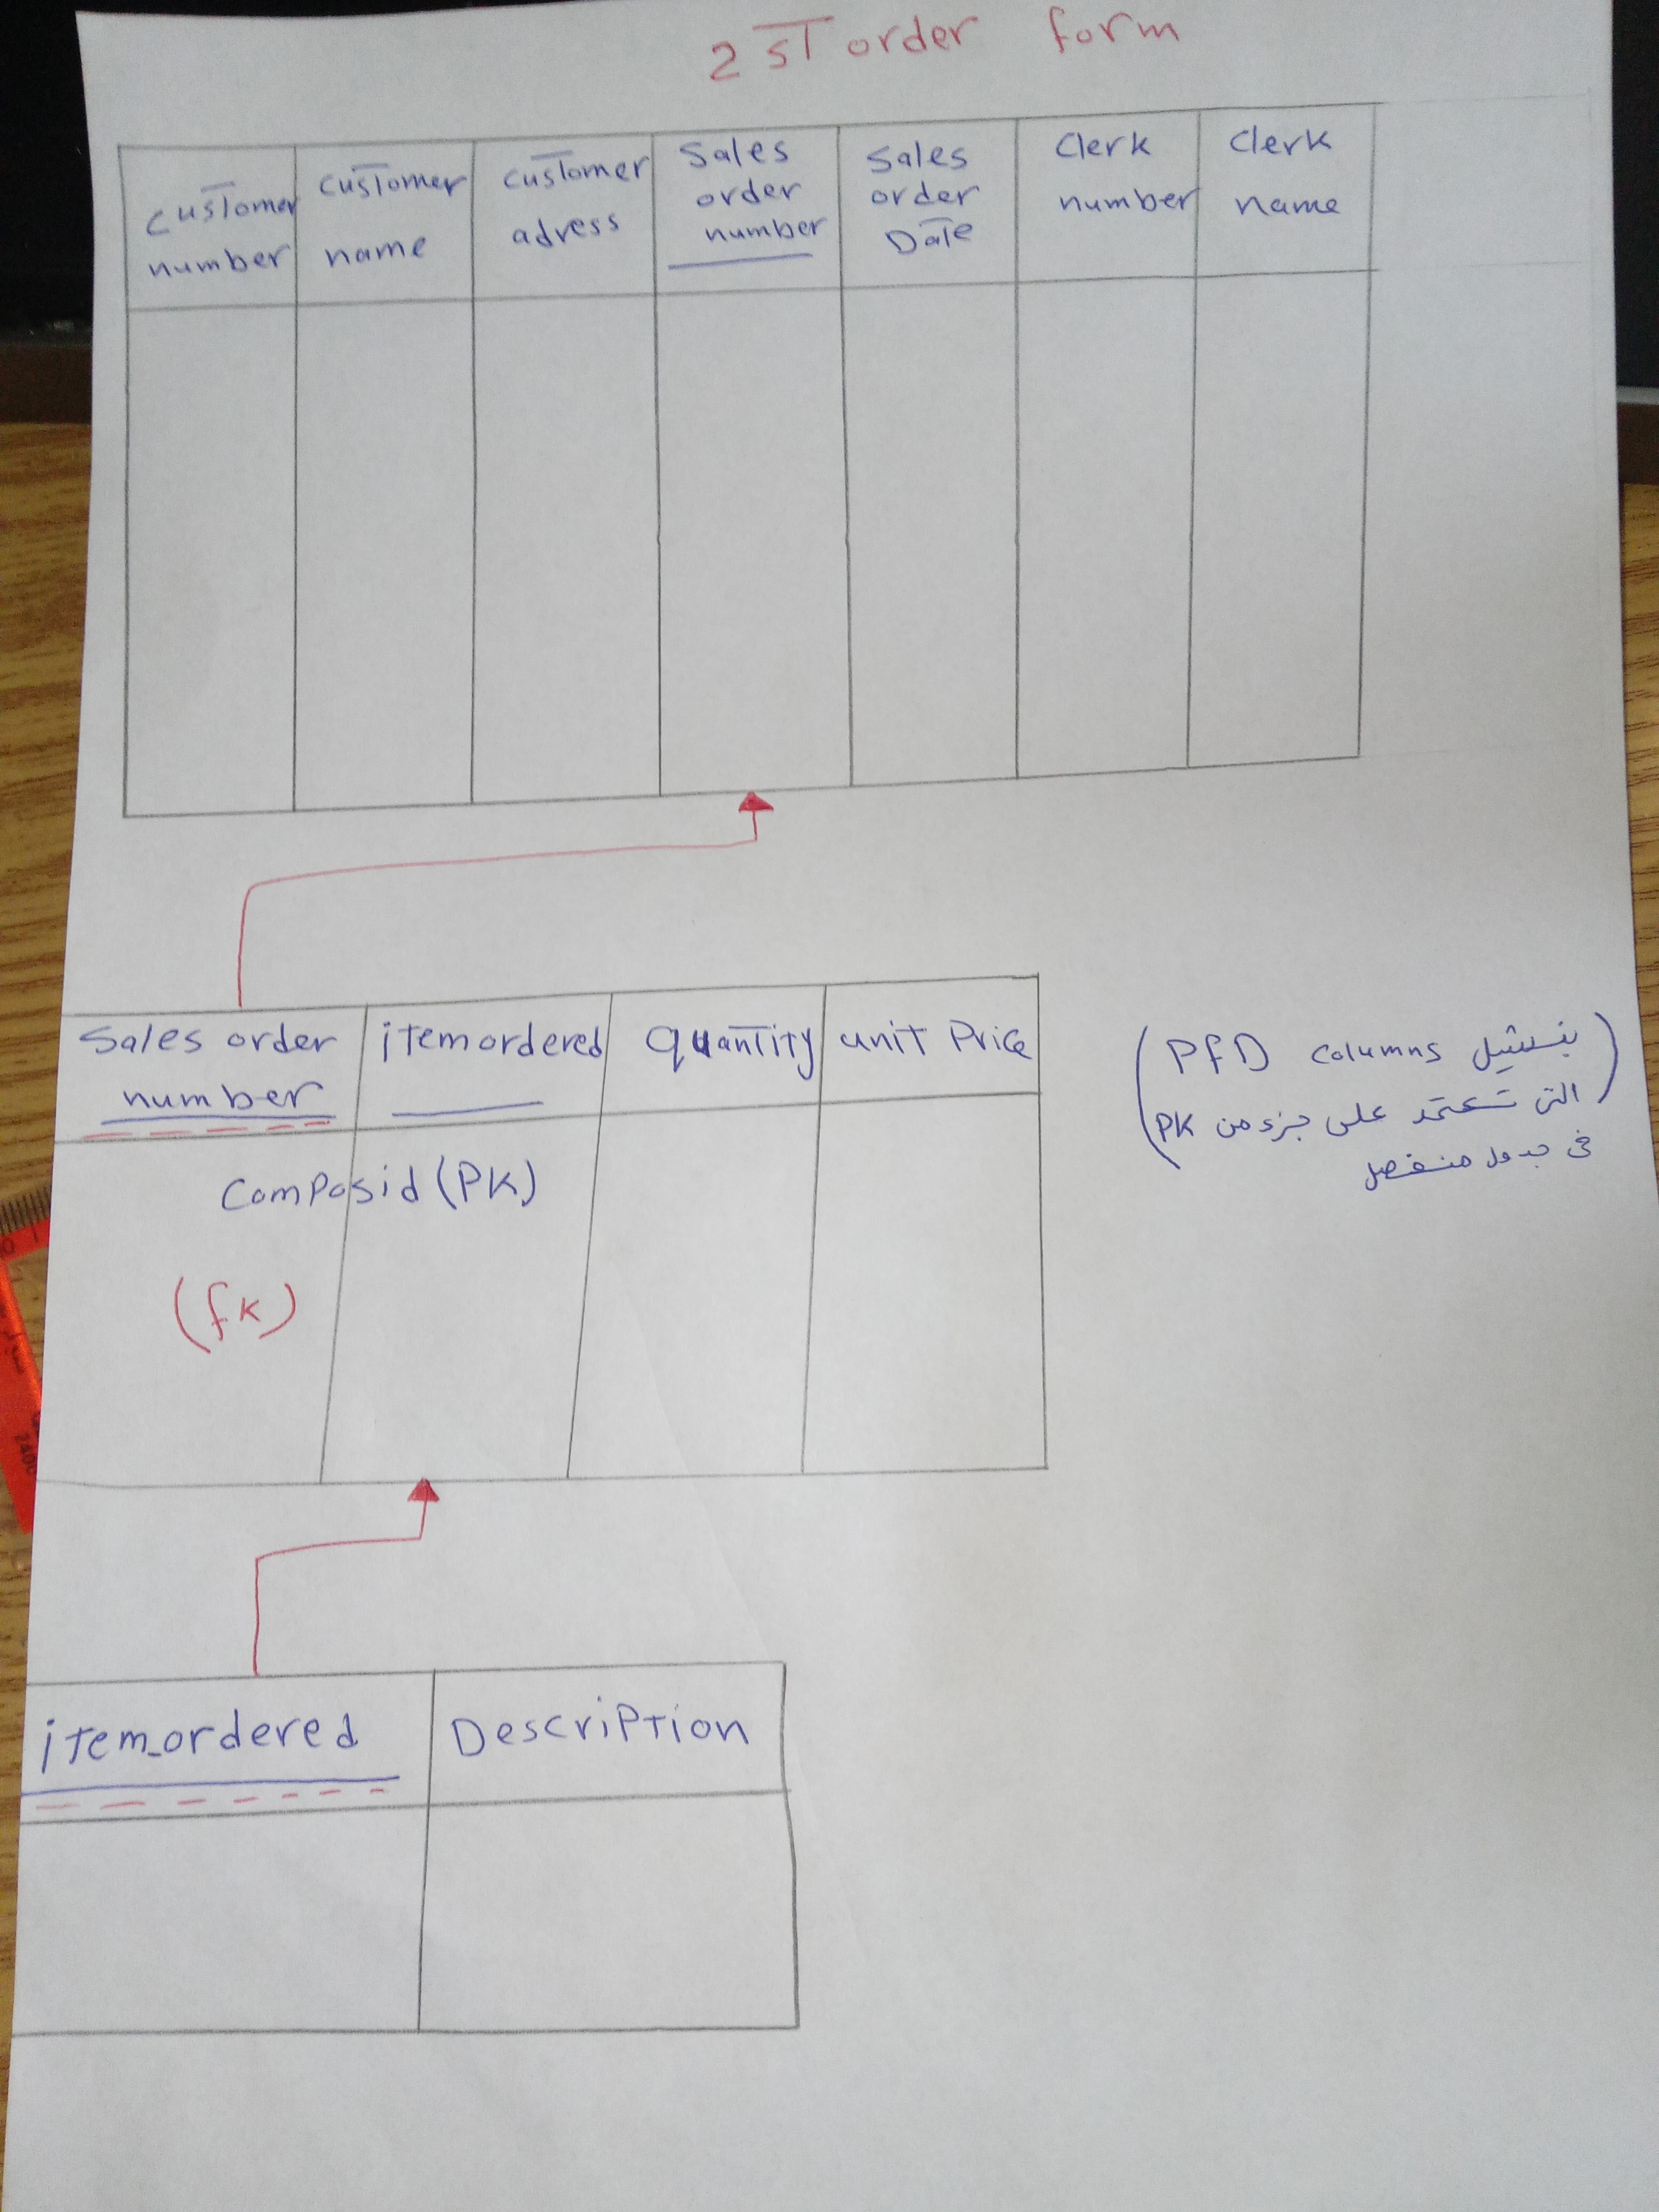 2 ST order form
customer number
customer name
customer adress
Sales order number
Sales order Date
Clerk number
Clerk name
Sales order number
item ordered
Quantity
unit Price
Composid (PK)
(fk)
(بنستبيل PFD columns
التى تعتمد على جزء من PK)
فى جدول منفصل
item_ordered
Description